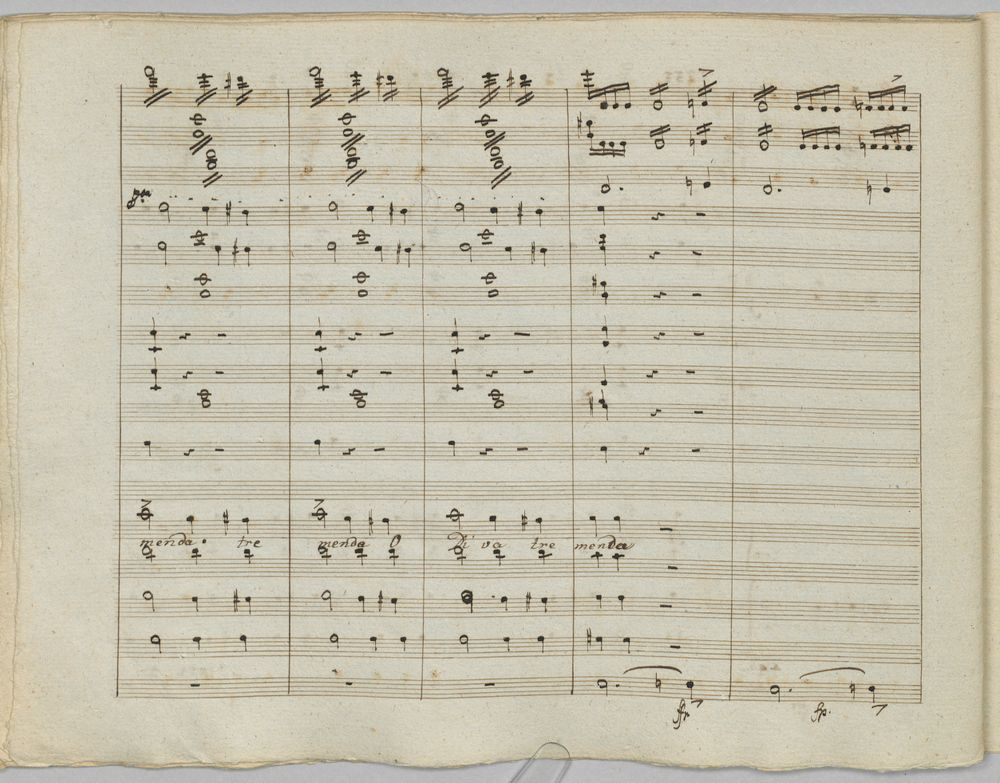 menda. tre menda O Di va tre menda
fp. fp.